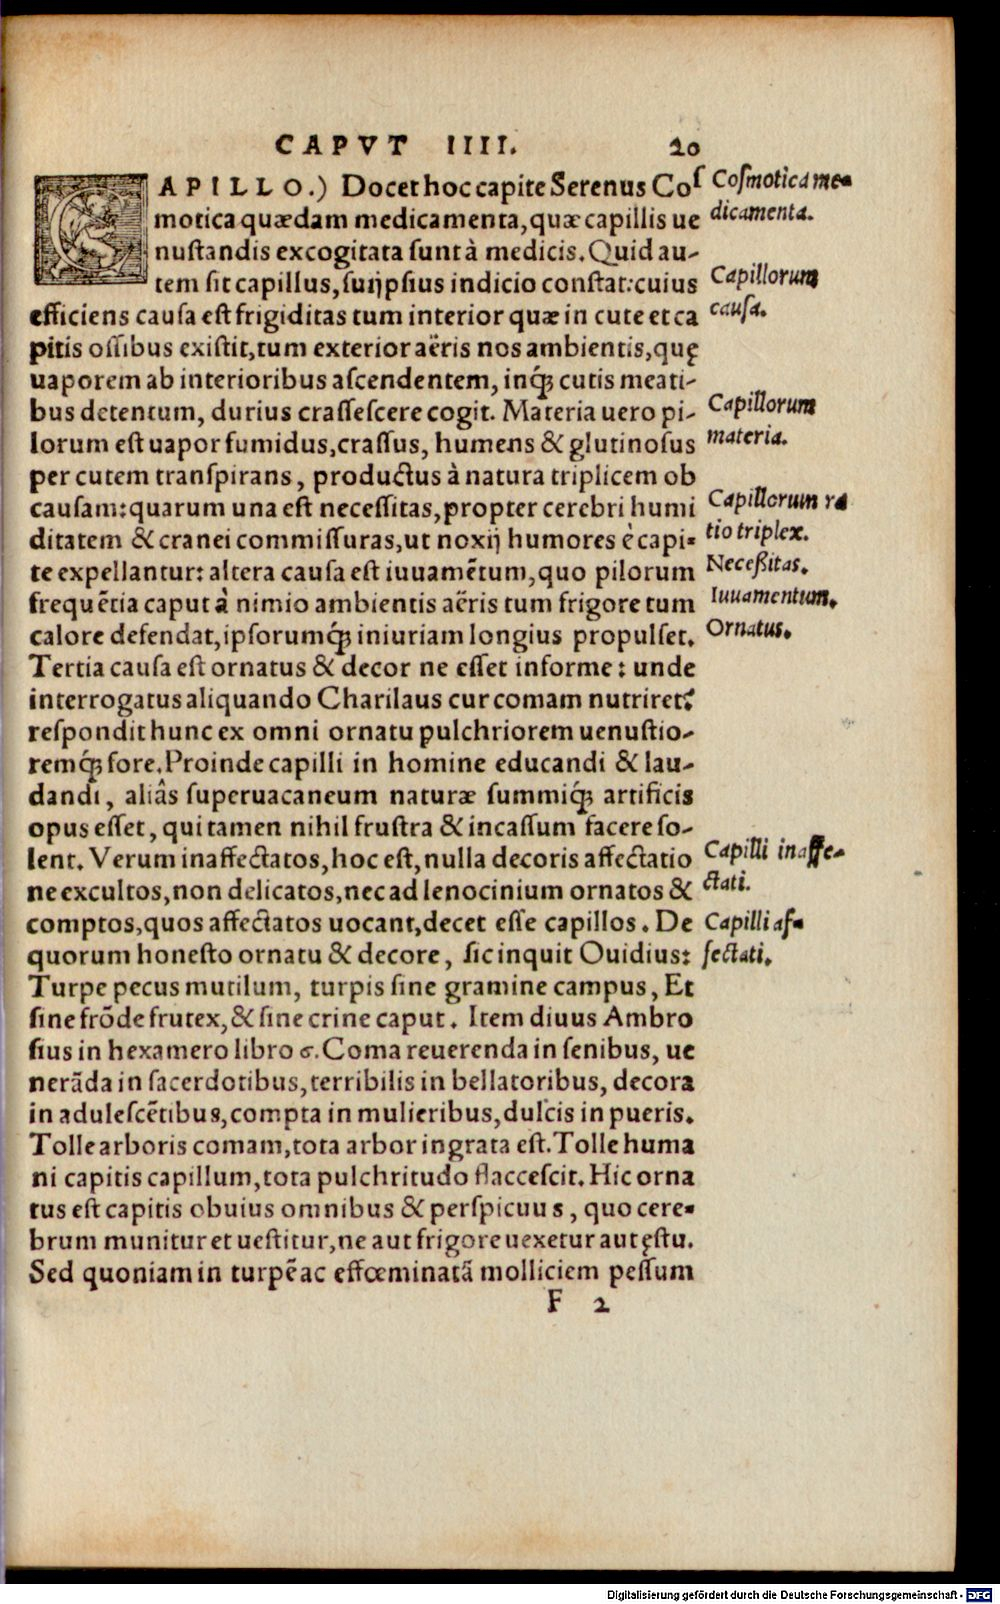 CAPVT IIII. 20
CAPILLO.) Docet hoc capite Serenus Coſ
motica quædam medicamenta, quæ capillis ue
nuſtandis excogitata ſunt à medicis. Quid au-
tem ſit capillus, ſuijpſius indicio conſtat: cuius
efficiens cauſa eſt frigiditas tum interior quæ in cute et ca
pitis oſſibus exiſtit, tum exterior aëris nos ambientis, quę
uaporem ab interioribus aſcendentem, inq́ꝫ cutis meati-
bus detentum, durius craſſeſcere cogit. Materia uero pi-
lorum eſt uapor fumidus, craſſus, humens & glutinoſus
per cutem tranſpirans, productus à natura triplicem ob
cauſam: quarum una eſt neceſſitas, propter cerebri humi
ditatem & cranei commiſſuras, ut noxij humores è capi-
te expellantur: altera cauſa eſt iuuamẽtum, quo pilorum
frequẽtia caput à nimio ambientis aëris tum frigore tum
calore defendat, ipſorumq́ꝫ iniuriam longius propulſet.
Tertia cauſa eſt ornatus & decor ne eſſet informe: unde
interrogatus aliquando Charilaus cur comam nutriret?
reſpondit hunc ex omni ornatu pulchriorem uenuſtio-
remq́ꝫ fore. Proinde capilli in homine educandi & lau-
dandi, aliâs ſuperuacaneum naturæ ſummiq́ꝫ artificis
opus eſſet, qui tamen nihil fruſtra & incaſſum facere ſo-
lent. Verum inaffectatos, hoc eſt, nulla decoris affectatio
ne excultos, non delicatos, nec ad lenocinium ornatos &
comptos, quos affectatos uocant, decet eſſe capillos. De
quorum honeſto ornatu & decore, ſic inquit Ouidius:
Turpe pecus mutilum, turpis ſine gramine campus, Et
ſine frõde frutex, & ſine crine caput. Item diuus Ambro
ſius in hexamero libro 6. Coma reuerenda in ſenibus, ue
nerãda in ſacerdotibus, terribilis in bellatoribus, decora
in aduleſcẽtibus, compta in mulieribus, dulcis in pueris.
Tolle arboris comam, tota arbor ingrata eſt. Tolle huma
ni capitis capillum, tota pulchritudo flacceſcit. Hic orna
tus eſt capitis obuius omnibus & perſpicuus, quo cere-
brum munitur et ueſtitur, ne aut frigore uexetur aut ęſtu.
Sed quoniam in turpẽ ac effœminatã molliciem peſſum
F 2
Coſmotica me-
dicamenta.
Capillorum
cauſa.
Capillorum
materia.
Capillorum ra
tio triplex.
Neceßitas.
Iuuamentum.
Ornatus.
Capilli inaffe-
ctati.
Capilli af-
fectati.
Digitalisierung gefördert durch die Deutsche Forschungsgemeinschaft - DFG